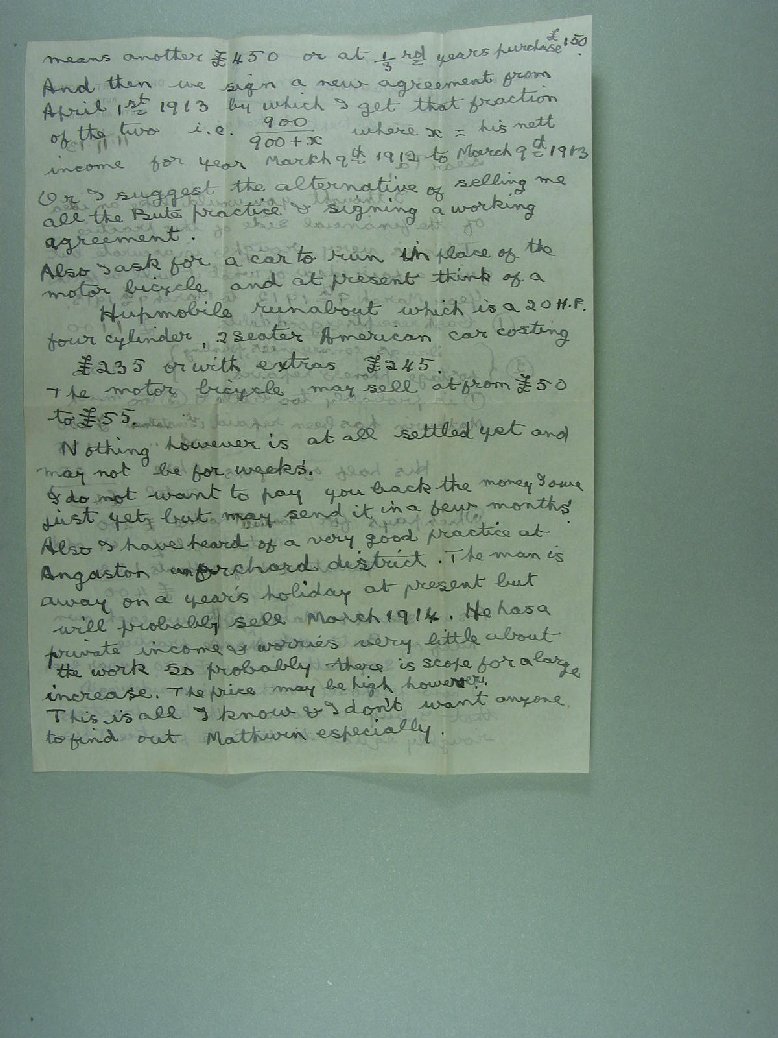 means another £450 or at 1/3 rd years purchase £150.
And then we sign a new agreement from
April 1st 1913 by which I get that fraction
of the two i.e. 900/900+x where x = his nett
income for year March 9th 1912 to March 9th 1913
Or I suggest the alternative of selling me
all the Bute practice & signing a working
agreement.
Also I ask for a car to run in place of the
motor bicycle and at present think of a
Hupmobile runabout which is a 20 H.P.
four cylinder, 2 seater American car costing
£235 or with extras £245.
The motor bicycle may sell at from £50
to £55.
Nothing however is at all settled yet and
may not be for weeks.
I do not want to pay you back the money I owe
just yet, but may send it in a few months.
Also I have heard of a very good practice at
Angaston orchard district. The man is
away on a year's holiday at present but
will probably sell March 1914. He has a
private income & worries very little about
the work so probably there is scope for a large
increase. The price may be high however.
This is all I know & I don't want anyone
to find out Mathwin especially.